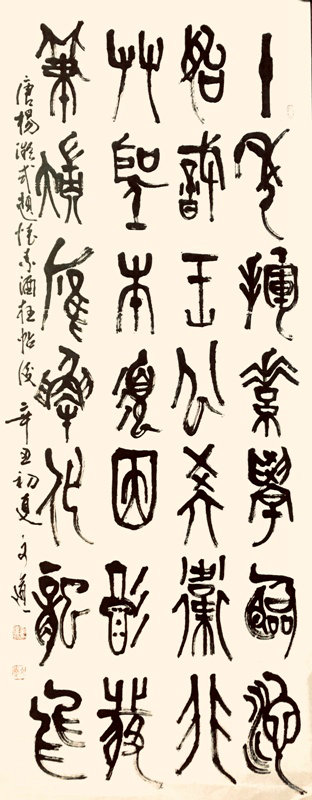 十年揮素學臨池
始識王公學衛非
艸聖未須因酒發
筆端應解化龍飛
唐楊凝式題懷素酒狂帖後 辛丑初夏 文